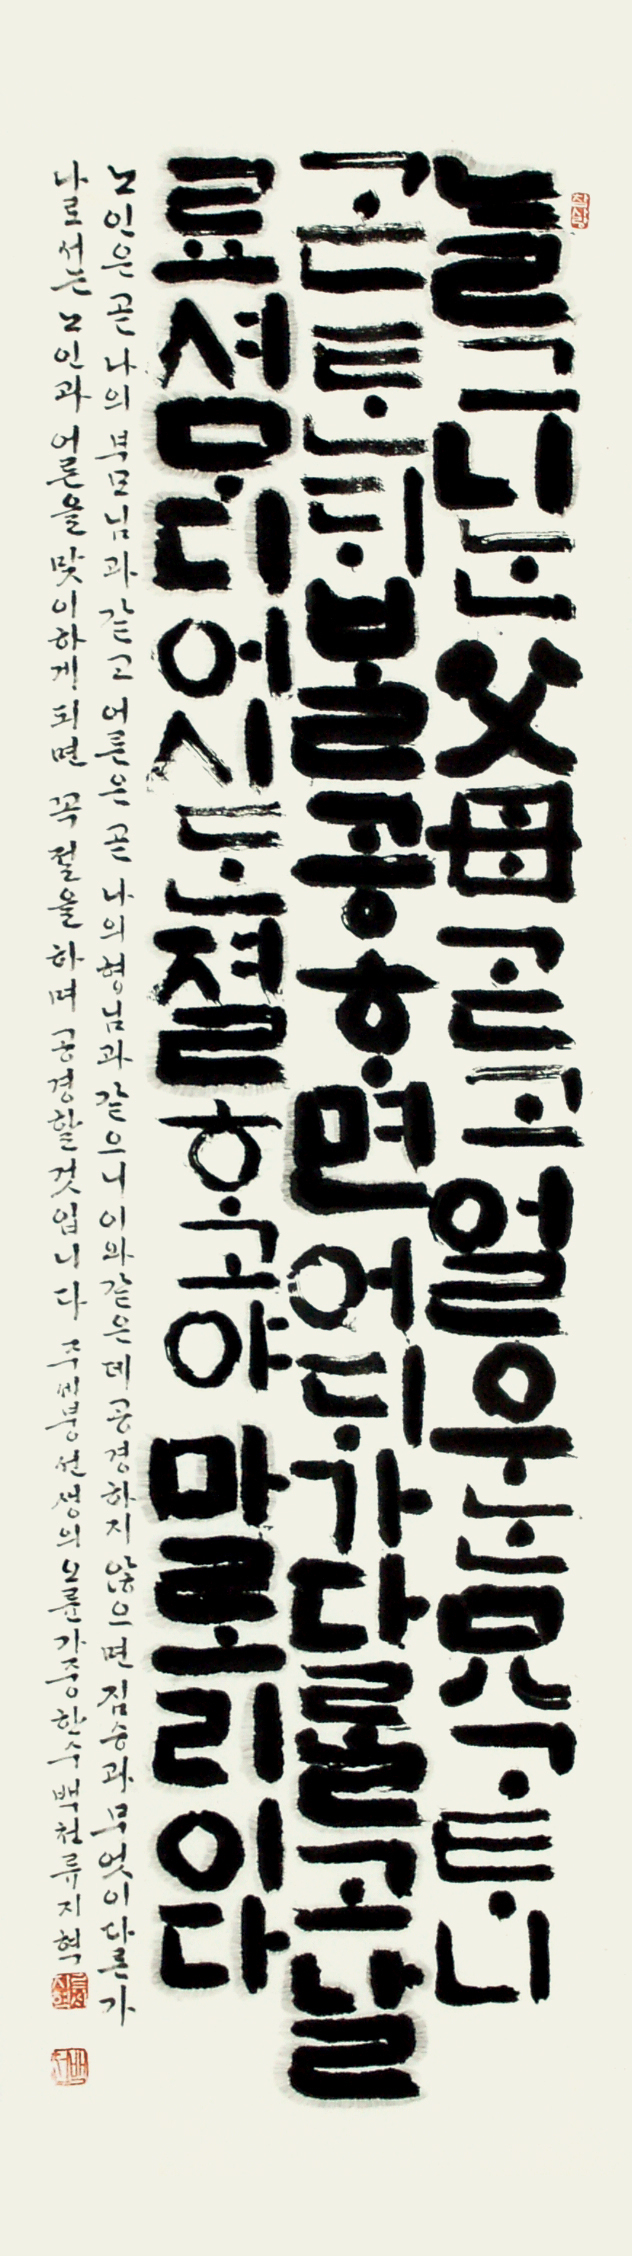 늘그니ᄂᆞᆫ父母ᄀᆞᆮ고얼우ᄂᆞᆫ兄ᄀᆞᄐᆞ니
ᄀᆞᆮᄐᆞᆫᄃᆡ불공ᄒᆞ면어ᄃᆡ가다ᄅᆞᆯ고날
료셔ᄆᆞ디어시ᄃᆞᆫ졀ᄒᆞ고야마로리이다
노인은 곧 나의 부모님과 같고 어른은 곧 나의 형님과 같으니 이와 같은데 공경하지 않으면 짐승과 무엇이 다른가
나로서는 노인과 어른을 맞이하게 되면 꼭 절을 하며 공경할 것입니다 주세붕 선생의 오륜가 중 한 수 백천 류지혁